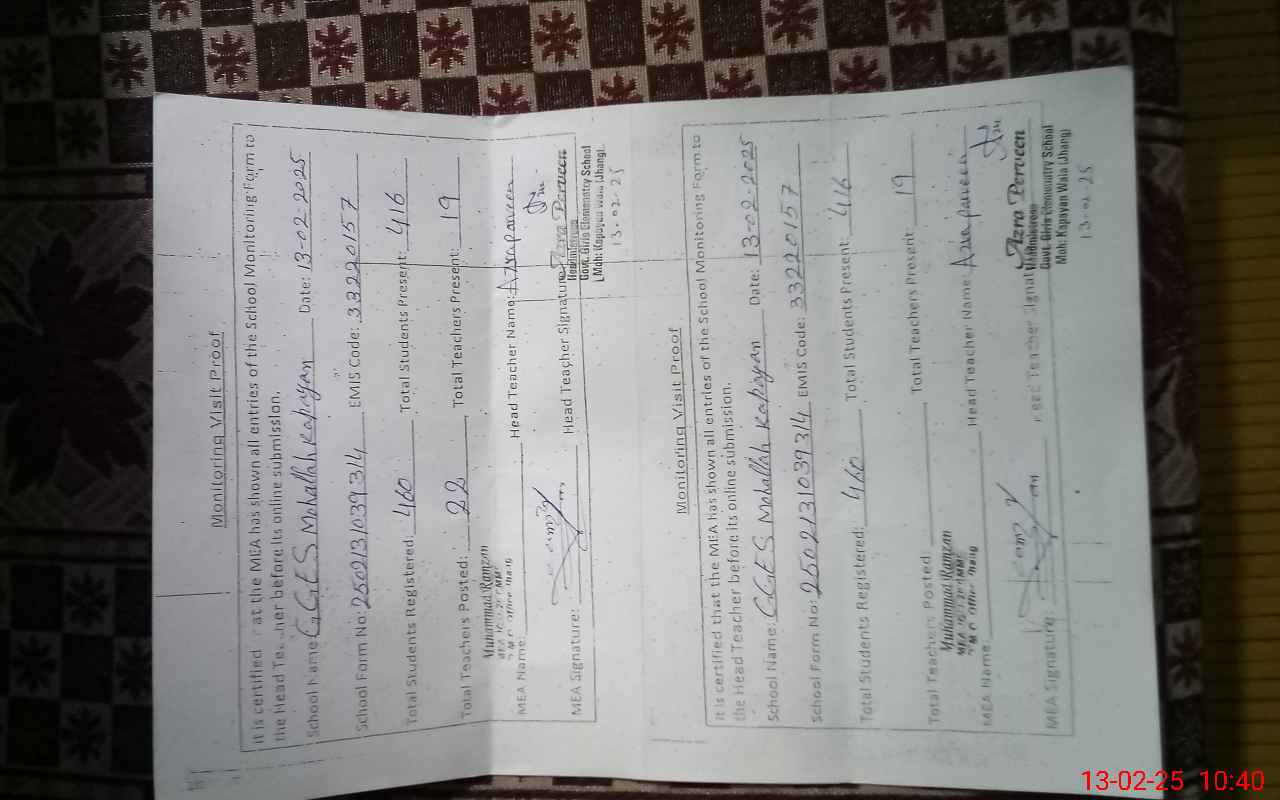 Monitoring Visit Proof
It is certified at the MEA has shown all entries of the School Monitoring Form to
the Head before its online submission.
School Name: GGES Mohallah Kapayan Date: 13-02-2025
School Form No: 25021310393/4 EMIS Code: 33220157
Total Students Registered: 460 Total Students Present: 416
Total Teachers Posted: 22 Total Teachers Present: 19
Muhammad Ramzan
MEA Name: Head Teacher Name: Azra parveen
MEA Signature: Head Teacher Signature
Azra Perveen
Headmistress
Govt. Girls Elementry School
Moh: Kapayan Wala (Jhang).
13-02-25
Monitoring Visit Proof
It is certified that the MEA has shown all entries of the School Monitoring Form to
the Head Teacher before its online submission.
School Name: GGES Mohallah Kapayan Date: 13-02-2025
School Form No: 25021310393/4 EMIS Code: 33220157
Total Students Registered: 460 Total Students Present: 416
Total Teachers Posted: Total Teachers Present: 19
Muhammad Ramzan
MEA Name: Head Teacher Name: Azra parveen
MEA Signature: Head Teacher Signat
Azra Perveen
Headmistress
Govt. Girls Elementry School
Moh: Kapayan Wala (Jhang)
13-02-25
13-02-25 10:40